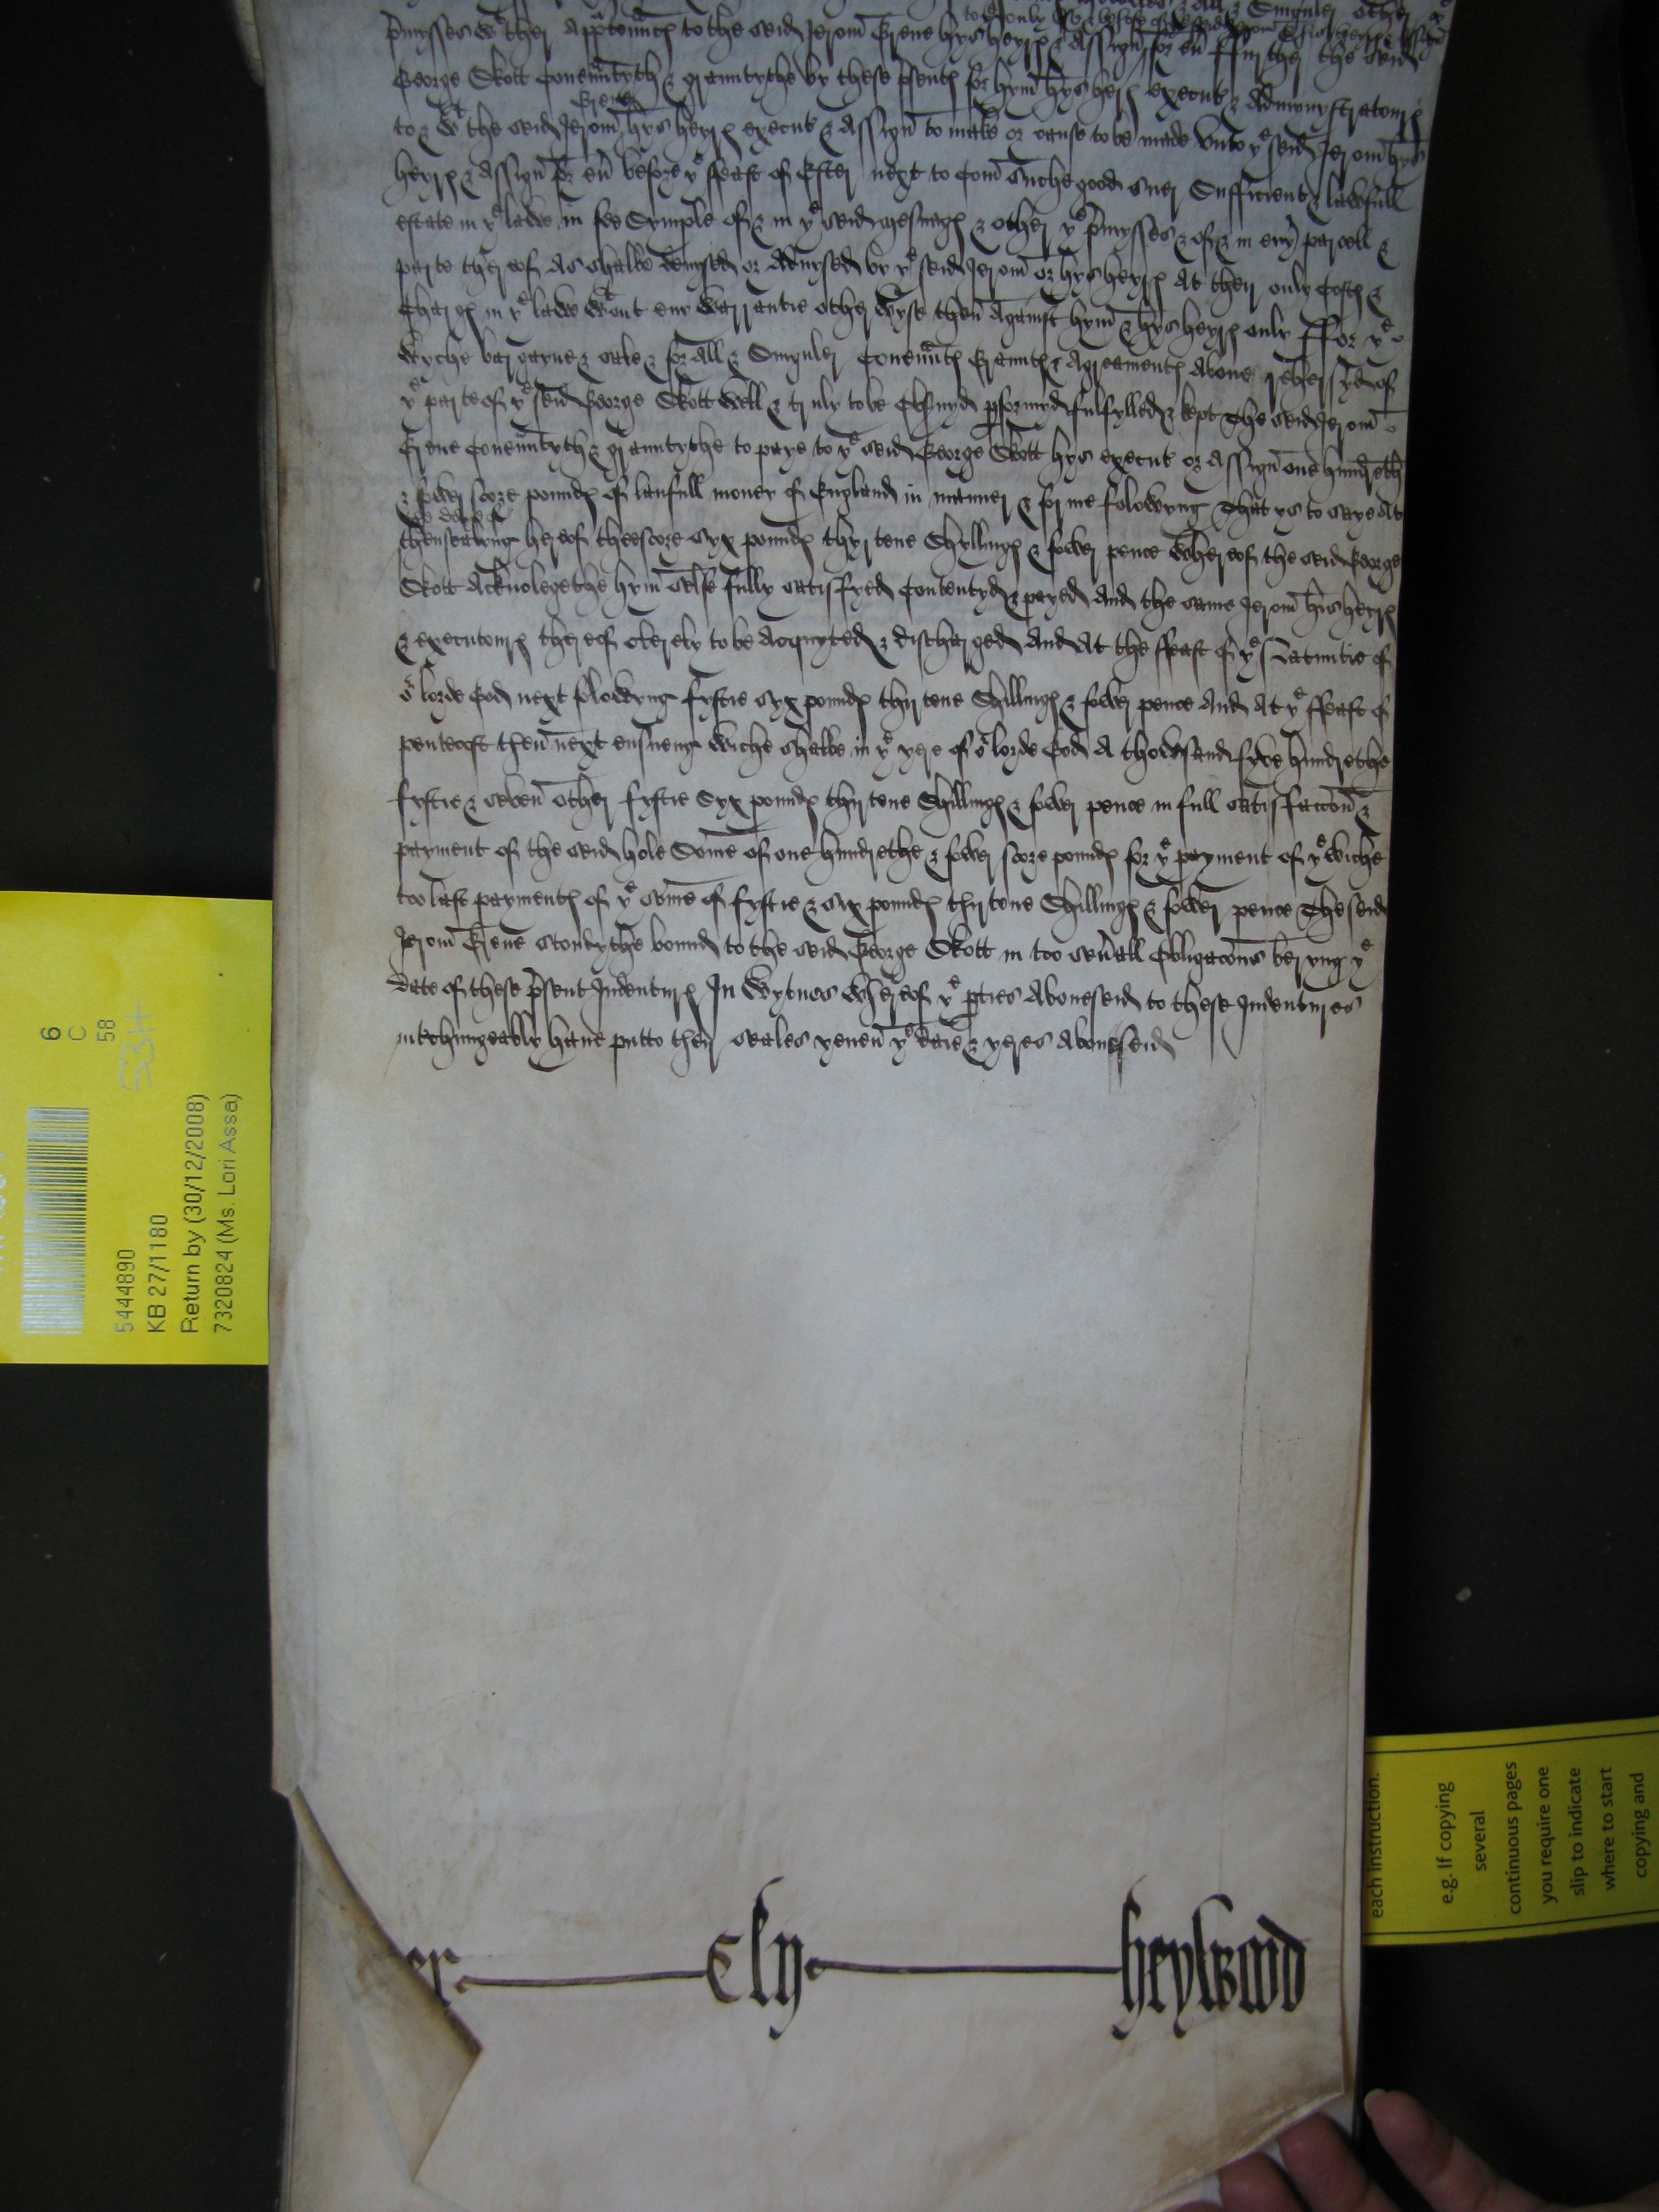 to the only use & behofe of the seid Jerom & of his heyres & assignes
p̄mysses wt ther app̄ten̄nc to the seid Jerom̄ Grene hys heyrs & Assign̄ for eū ffurther the seid
George Skott Couen̄ntyth & grauntythe by these p̄sents for hym̄ hys heirs execut & Admynystratours
Grene
to & wt the seid Jerom̄ hys heyrs execut & Assign̄ to make or cause to be made vnto ye seid Jerom̄ hys
heyrs & Assign̄ for eū before ye ffeast of Ester next to Com̄ Suche good suer Sufficient & lawfull
estate in ye lawe in fee Symple of & in ye seid mesuags & other ye p̄mysses & of & in eūy parcell &
parte therof As shalbe devysed or Aduysed by ye seid Jerom̄ or hys heyrs At their only Costs &
Chargs in ye lawe wtout eny warrantie otherwyse then̄ Against hym̄ & hys heyrs only ffor ye
Wyche bargayne & sale & for All & Singuler Couen̄nts Graunts & Agreaments Aboue rehersyd of
ye parte of ye seid George Skott Well & truly to be Obs̄uyd p̄formyd fulfylled & kept The seid Jerom̄
Grene Couen̄ntyth & grauntythe to paye to ye seid George Skott hys execut or Assign̄ one hundreth
& fower score pounds of laufull money of England in manner & forme folowyng That ys to saye At
thensealyng hereof threscore syx pounds thyrtene Shyllings & fower pence Whereof the seid George
Skott Acknolegethe hym̄ selfe fully satisfyed Contentyd & payed And the same Jerom̄ his heyrs
& executours thereof clerely to be Acquyted & discharged And At the ffeast of ye Natiuitie of
or lorde God next folowyng fyftie syx pounds thirtene Shillings & fower pence And At ye ffeast of
pentecost then̄ next ensueng Wiche shalbe in ye yere of or lorde God A thowsand fyve hundrethe
fyftie & seven̄ other fyftie Syx pounds thirtene Shillings & fower pence in full satisfaccōn &
payment of the seid hole Some of one hundrethe & fower score pounds for ye payment of ye Wiche
too last payments of ye some of fyftie & syx pounds thirtene Shillings & fower pence The seid
Jerom̄ Grene stondythe bound to the seid George Skott in too seūall Obligacōns beryng ye
date of these p̄sent Indenturs In Wytnes Whereof ye p̄ties Aboueseid to these Indentures
intchungeably haue putto their seales yeuen̄ ye daie & yeres Aboueseid
er Ely heyward
6
C
58
53H
5444890
KB 27/1180
Return by (30/12/2008)
7320824 (Ms. Lori Assa)
each instruction.
e.g. If copying
several
continuous pages
you require one
slip to indicate
where to start
copying and